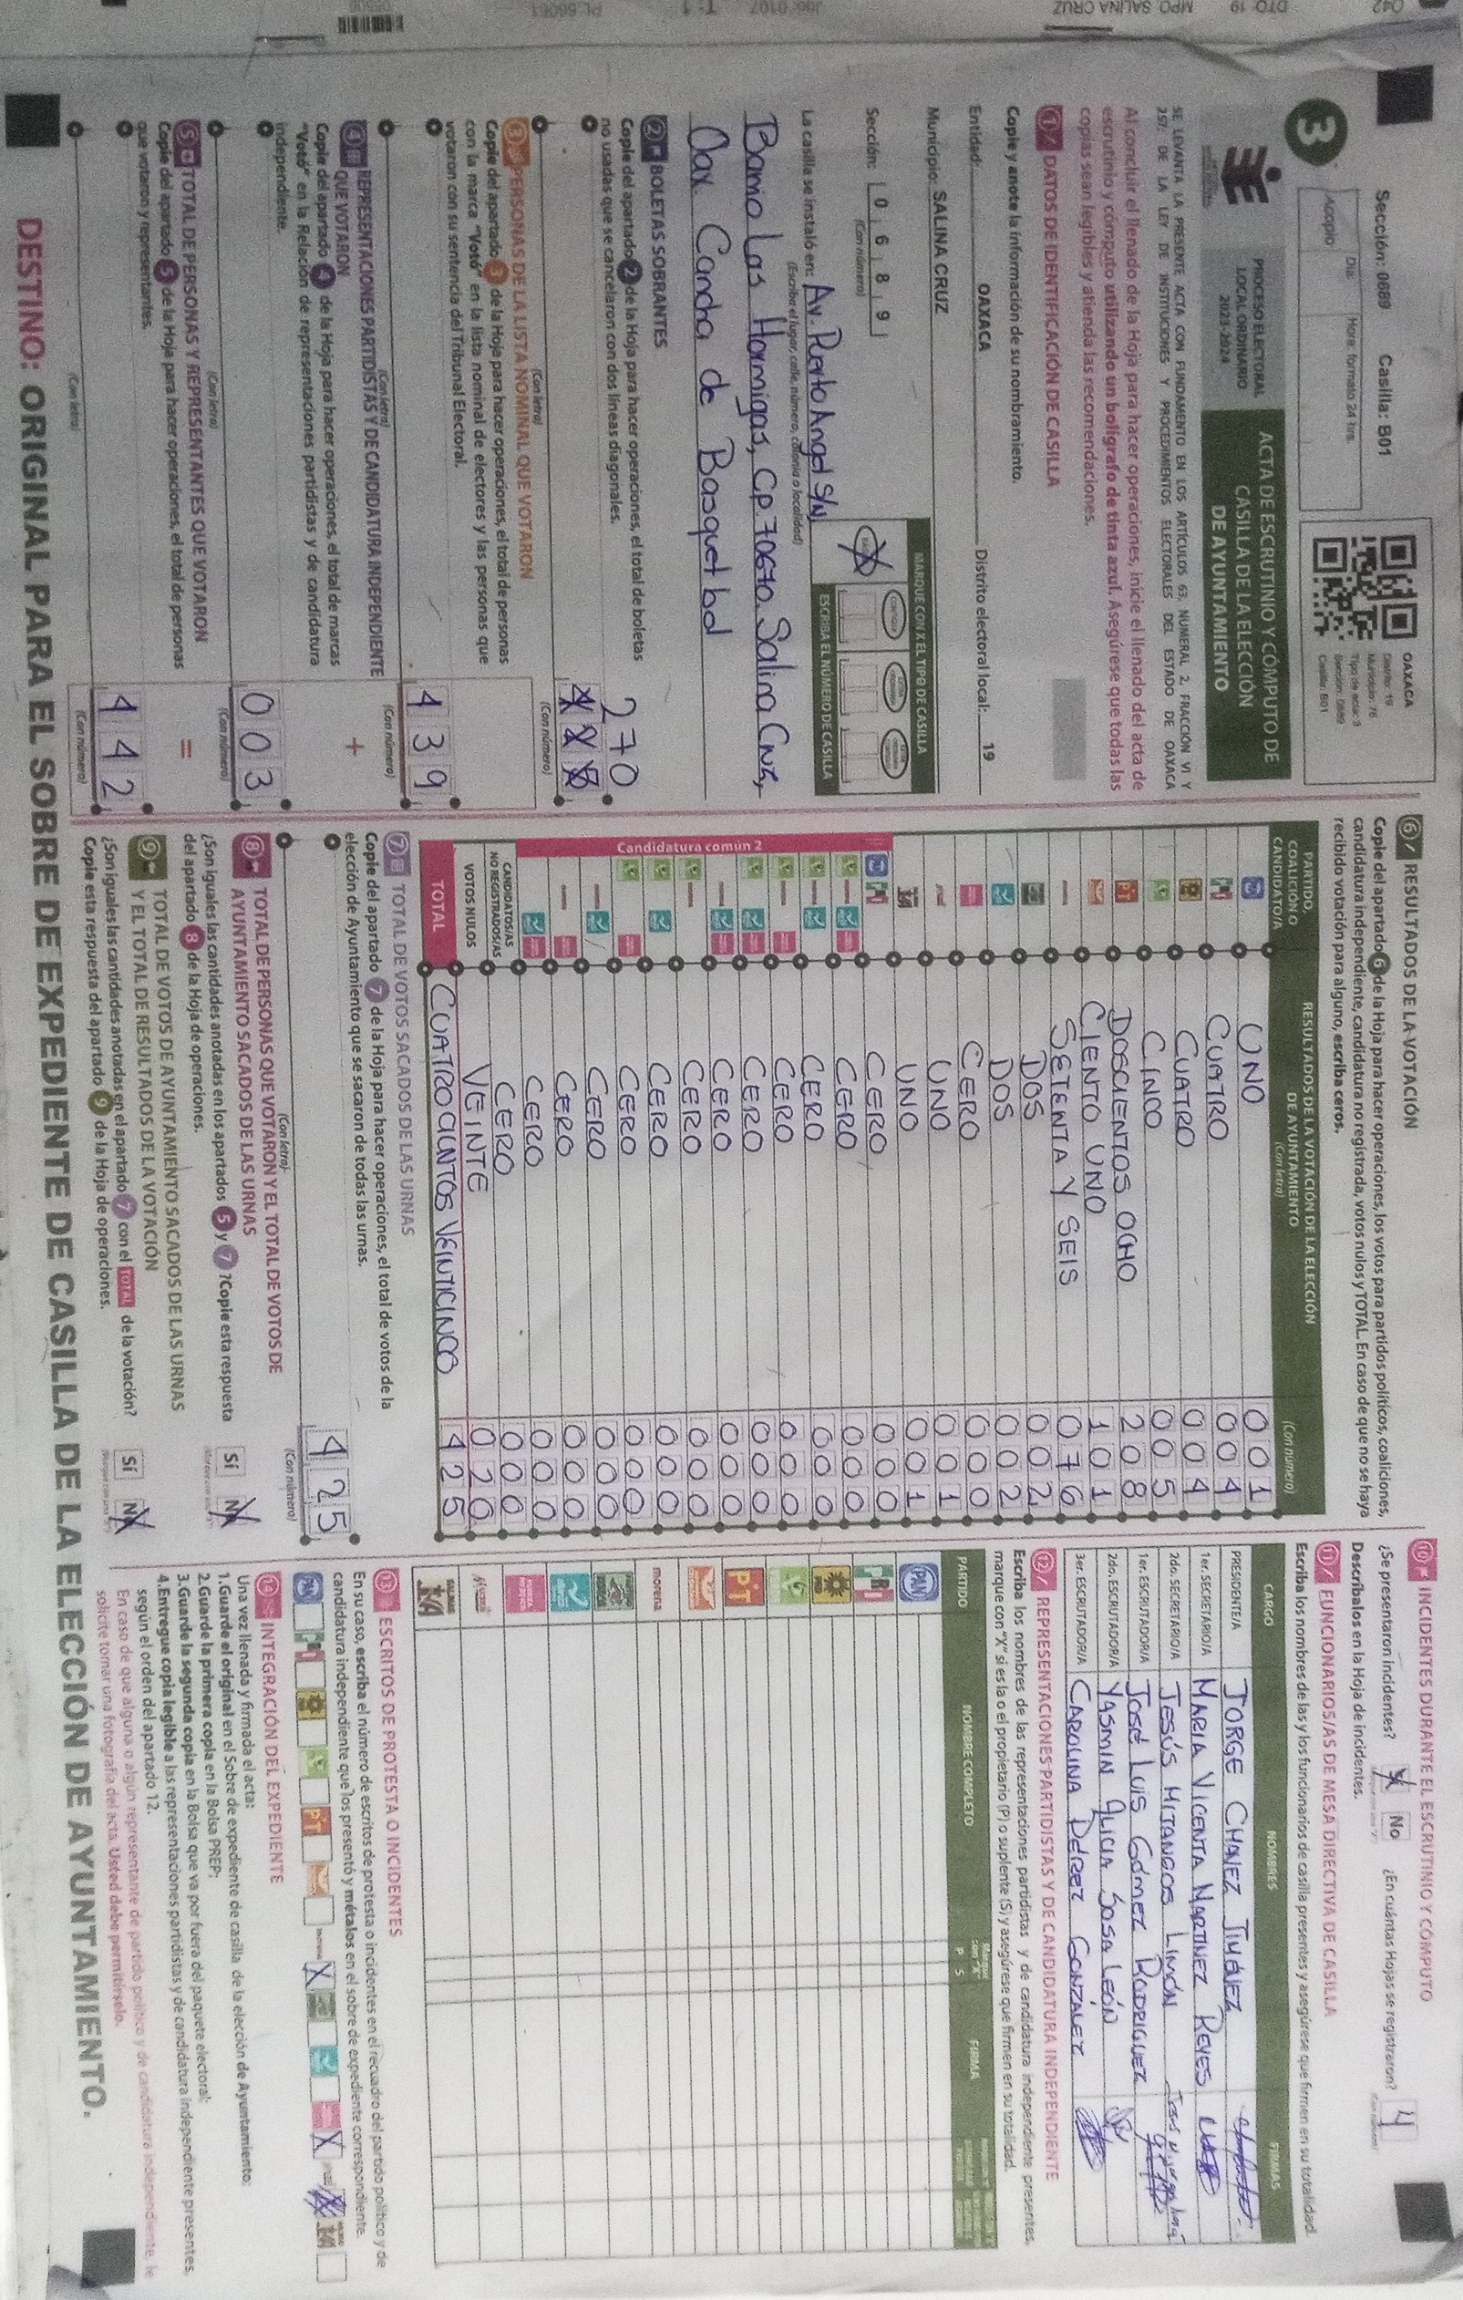 Sección: 0689 Casilla: B01
Día: Hora: formato 24 hrs.
Acopio
3
PROCESO ELECTORAL
LOCAL ORDINARIO
2023-2024
ACTA DE ESCRUTINIO Y CÓMPUTO DE
CASILLA DE LA ELECCIÓN
DE AYUNTAMIENTO
OAXACA
Distrito: 19
Municipio: 76
Tipo de acta: 3
Sección: 0689
Casilla: B01
SE LEVANTA LA PRESENTE ACTA CON FUNDAMENTO EN LOS ARTÍCULOS 63, NUMERAL 2, FRACCIÓN VI Y
237; DE LA LEY DE INSTITUCIONES Y PROCEDIMIENTOS ELECTORALES DEL ESTADO DE OAXACA
Al concluir el llenado de la Hoja para hacer operaciones, inicie el llenado del acta de
escrutinio y cómputo utilizando un bolígrafo de tinta azul. Asegúrese que todas las
copias sean legibles y atienda las recomendaciones.
1 DATOS DE IDENTIFICACIÓN DE CASILLA
Copie y anote la información de su nombramiento.
Entidad: OAXACA Distrito electoral local: 19
Municipio: SALINA CRUZ
Sección: 0 6 8 9
(Con número)
MARQUE CON X EL TIPO DE CASILLA
ESCRIBA EL NÚMERO DE CASILLA
La casilla se instaló en: Av. Puerto Angel S/N,
(Escriba el lugar, calle, número, colonia o localidad)
Barrio Las Hormigas, Cp. 70670. Salina Cruz,
Oax. Cancha de Basquetbol
2 BOLETAS SOBRANTES
Copie del apartado 2 de la Hoja para hacer operaciones, el total de boletas
no usadas que se cancelaron con dos líneas diagonales.
270
(Con letra) (Con número)
3 PERSONAS DE LA LISTA NOMINAL QUE VOTARON
Copie del apartado 3 de la Hoja para hacer operaciones, el total de personas
con la marca "Votó" en la lista nominal de electores y las personas que
votaron con su sentencia del Tribunal Electoral.
4 3 9
(Con letra) (Con número)
4 REPRESENTACIONES PARTIDISTAS Y DE CANDIDATURA INDEPENDIENTE
QUE VOTARON
+
Copie del apartado 4 de la Hoja para hacer operaciones, el total de marcas
"Votó" en la Relación de representaciones partidistas y de candidatura
independiente.
0 0 3
(Con letra) (Con número)
5 TOTAL DE PERSONAS Y REPRESENTANTES QUE VOTARON
=
Copie del apartado 5 de la Hoja para hacer operaciones, el total de personas
que votaron y representantes.
4 4 2
(Con letra) (Con número)
6 RESULTADOS DE LA VOTACIÓN
Copie del apartado 6 de la Hoja para hacer operaciones, los votos para partidos políticos, coaliciones,
candidatura independiente, candidatura no registrada, votos nulos y TOTAL. En caso de que no se haya
recibido votación para alguno, escriba ceros.
PARTIDO,
COALICIÓN O
CANDIDATO/A
RESULTADOS DE LA VOTACIÓN DE LA ELECCIÓN
DE AYUNTAMIENTO
(Con letra) (Con número)
UNO 001
CUATRO 004
CUATRO 004
CINCO 005
DOSCIENTOS OCHO 208
CIENTO UNO 101
SETENTA Y SEIS 076
DOS 002
DOS 002
CERO 000
UNO 001
UNO 001
CERO 000
Candidatura común 2
CERO 000
CERO 000
CERO 000
CERO 000
CERO 000
CERO 000
CERO 000
CERO 000
CERO 000
CERO 000
CERO 000
CANDIDATOS/AS
NO REGISTRADOS/AS CERO 000
VOTOS NULOS VEINTE 020
TOTAL CUATROCIENTOS VEINTICINCO 425
7 TOTAL DE VOTOS SACADOS DE LAS URNAS
Copie del apartado 7 de la Hoja para hacer operaciones, el total de votos de la
elección de Ayuntamiento que se sacaron de todas las urnas.
4 2 5
(Con letra) (Con número)
8 TOTAL DE PERSONAS QUE VOTARON Y EL TOTAL DE VOTOS DE
AYUNTAMIENTO SACADOS DE LAS URNAS
¿Son iguales las cantidades anotadas en los apartados 5 y 7 ? Copie esta respuesta
del apartado 8 de la Hoja de operaciones.
Sí No
9 TOTAL DE VOTOS DE AYUNTAMIENTO SACADOS DE LAS URNAS
Y EL TOTAL DE RESULTADOS DE LA VOTACIÓN
¿Son iguales las cantidades anotadas en el apartado 7 con el TOTAL de la votación?
Copie esta respuesta del apartado 9 de la Hoja de operaciones.
Sí No
10 INCIDENTES DURANTE EL ESCRUTINIO Y CÓMPUTO
¿Se presentaron incidentes? Sí No ¿En cuántas Hojas se registraron? 4
Descríbalos en la Hoja de incidentes.
11 FUNCIONARIOS/AS DE MESA DIRECTIVA DE CASILLA
Escriba los nombres de las y los funcionarios de casilla presentes y asegúrese que firmen en su totalidad.
CARGO NOMBRES FIRMAS
PRESIDENTE/A JORGE CHAVEZ JIMENEZ
1er. SECRETARIO/A MARIA VICENTA MARTINEZ REYES
2do. SECRETARIO/A JESÚS MIJANGOS LIMÓN
1er. ESCRUTADOR/A JOSÉ LUIS GÓMEZ RODRIGUEZ
2do. ESCRUTADOR/A YASMIN ALICIA SOSA LEÓN
3er. ESCRUTADOR/A CAROLINA PEREZ GONZÁLEZ
12 REPRESENTACIONES PARTIDISTAS Y DE CANDIDATURA INDEPENDIENTE
Escriba los nombres de las representaciones partidistas y de candidatura independiente presentes,
marque con "X" si es la o el propietario (P) o suplente (S) y asegúrese que firmen en su totalidad.
PARTIDO NOMBRE COMPLETO P S FIRMA
PAN
PRI
PRD
PT
morena
13 ESCRITOS DE PROTESTA O INCIDENTES
En su caso, escriba el número de escritos de protesta o incidentes en el recuadro del partido político y de
candidatura independiente que los presentó y métalos en el sobre de expediente correspondiente.
14 INTEGRACIÓN DEL EXPEDIENTE
Una vez llenada y firmada el acta:
1.Guarde el original en el Sobre de expediente de casilla de la elección de Ayuntamiento;
2.Guarde la primera copia en la Bolsa PREP;
3.Guarde la segunda copia en la Bolsa que va por fuera del paquete electoral;
4.Entregue copia legible a las representaciones partidistas y de candidatura independiente presentes,
según el orden del apartado 12.
En caso de que alguna o algún representante de partido político y de candidatura independiente, le
solicite tomar una fotografía del acta. Usted debe permitírselo.
DESTINO: ORIGINAL PARA EL SOBRE DE EXPEDIENTE DE CASILLA DE LA ELECCIÓN DE AYUNTAMIENTO.